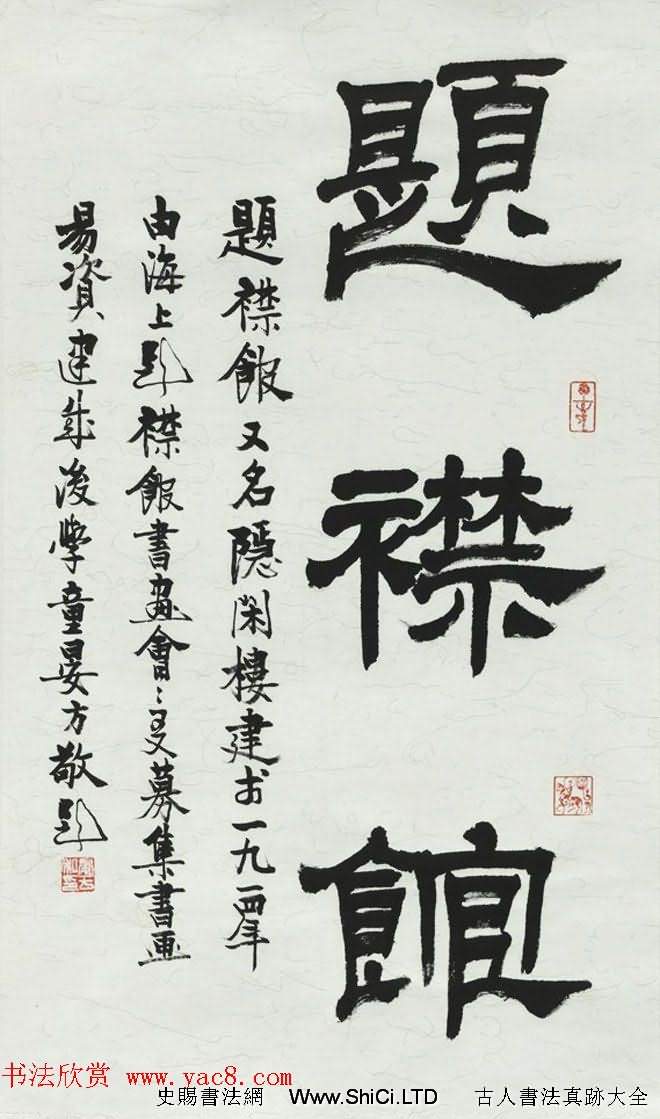 題襟館
題襟館又名隱閑樓建於一九一四年
由海上題襟館書畫會〻員募集書画
易資建成後學童晏方敬題
书法欣赏 www.yac8.com
史賜書法網 Www.ShiCi.LTD 古人書法真跡大全